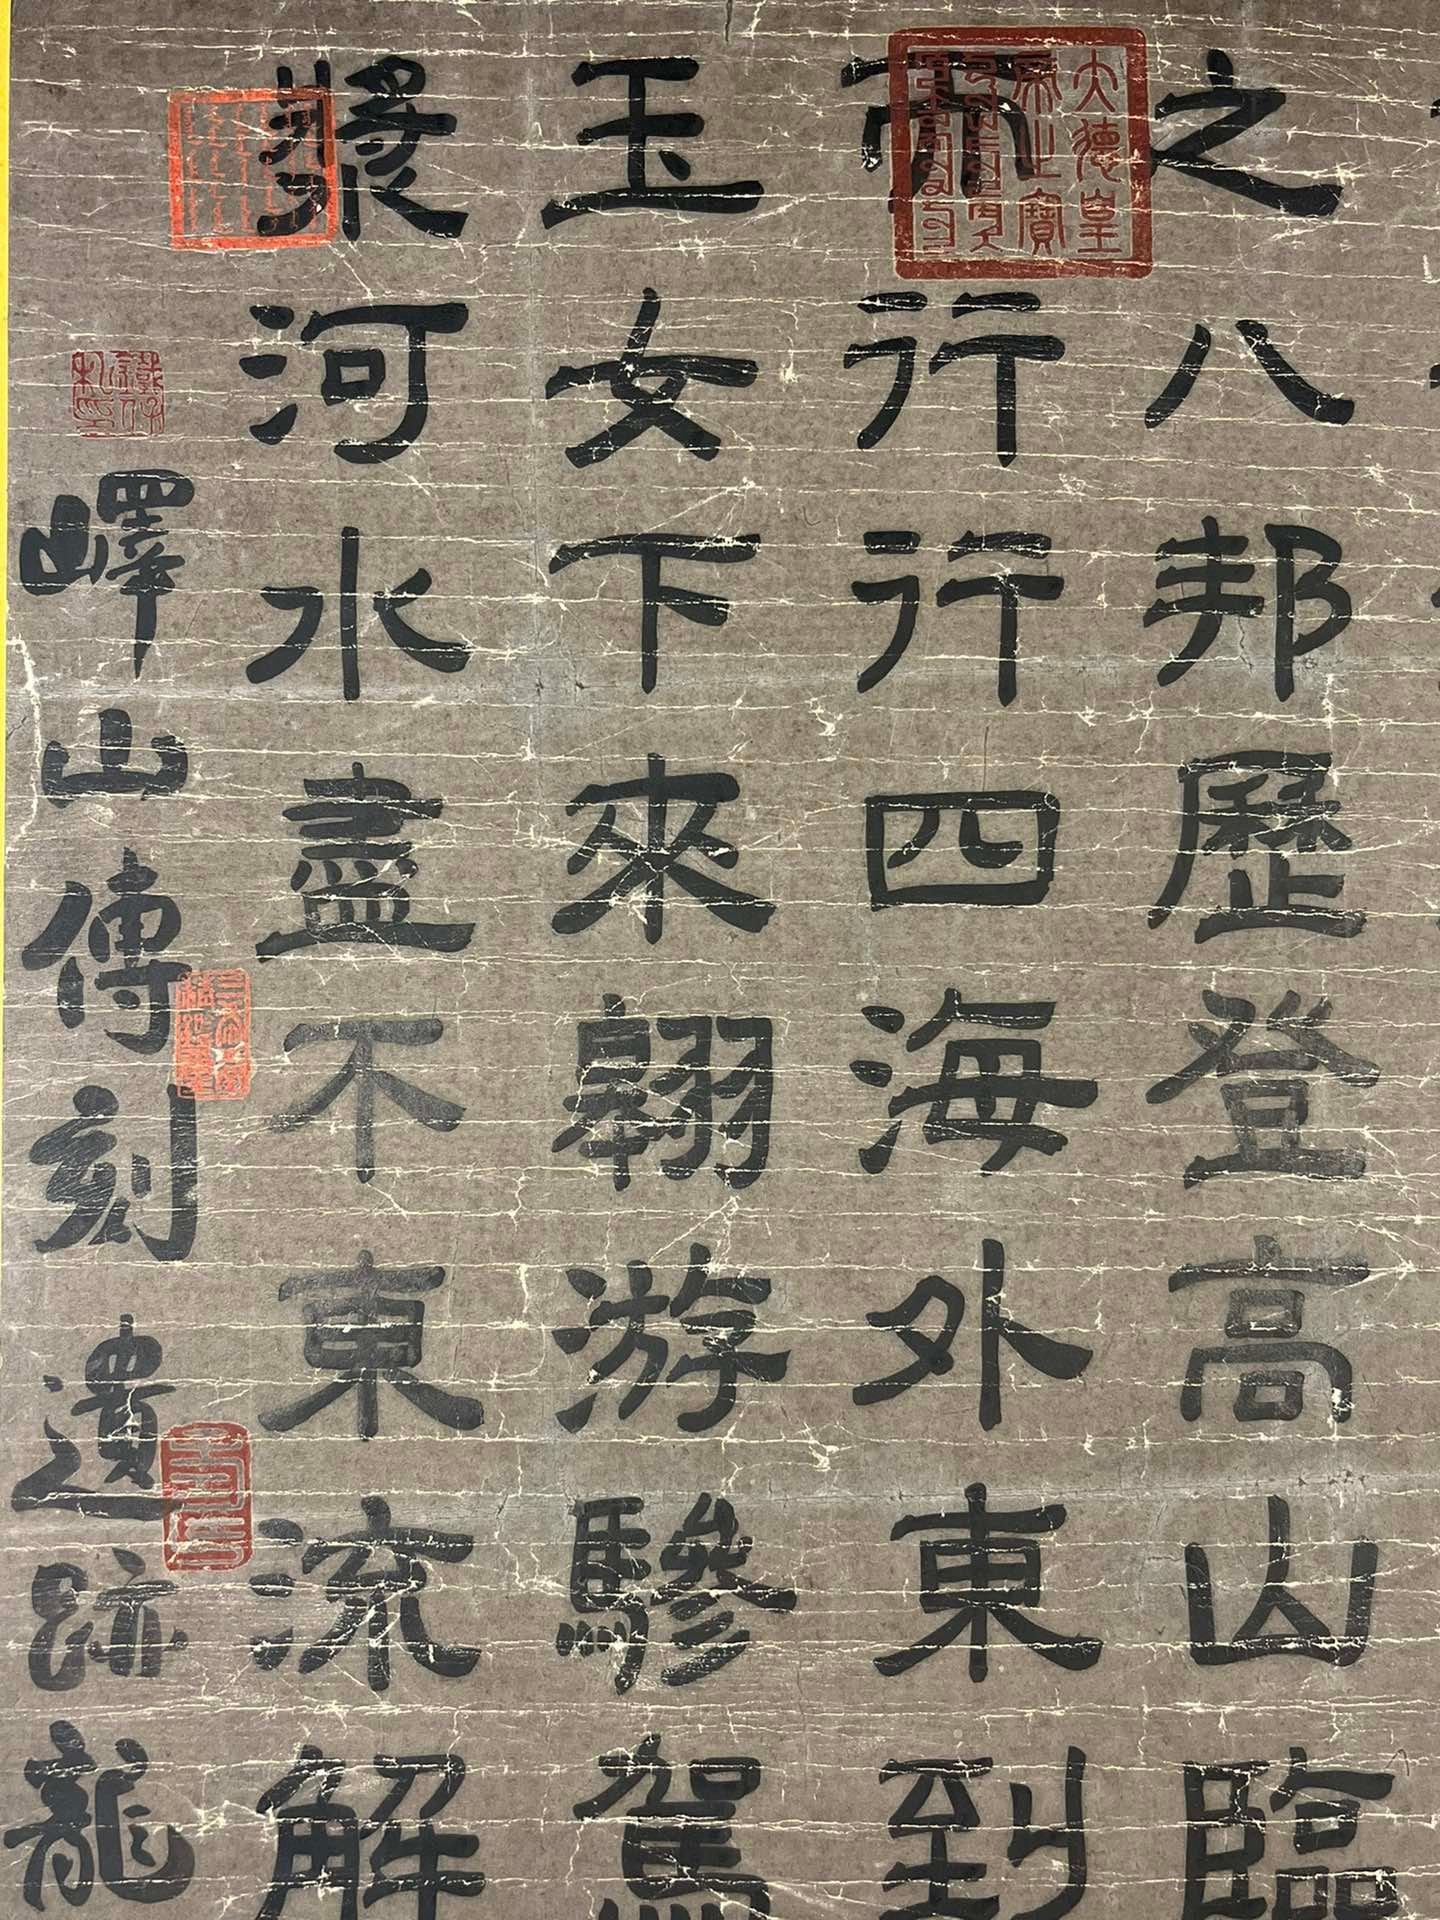 之八邦歷登高山臨
而行行四海外東到
玉女下來翱游驂駕
漿河水盡不東流解
嶧山傳刻遺跡龍
大德皇
帝之寶